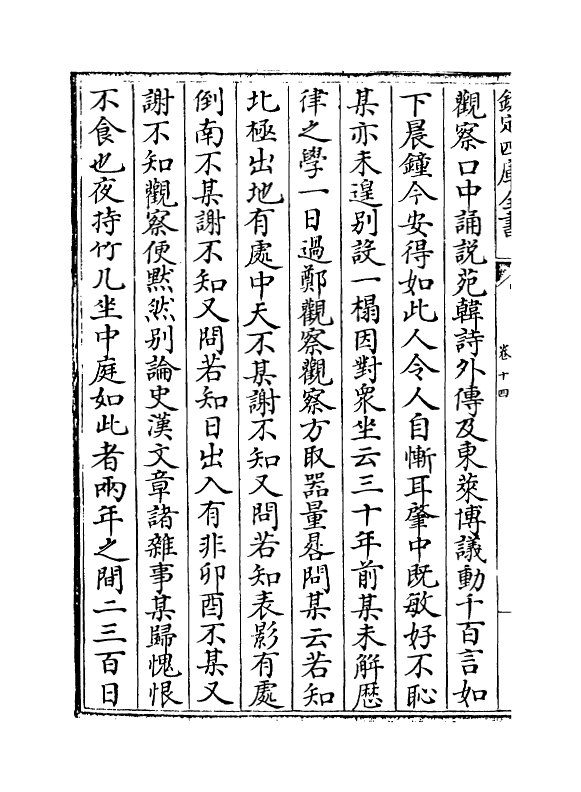 欽定四庫全書
卷十四
觀察口中誦説苑韓詩外傳及東萊博議動千百言如
下晨鐘今安得如此人令人自慚耳肇中既敏好不恥
某亦未遑别設一榻因對衆坐云三十年前某未解厯
律之學一日過鄭觀察觀察方取器量晷問某云若知
北極出地有處中天不某謝不知又問若知表影有處
倒南不某謝不知又問若知日出入有非卯酉不某又
謝不知觀察便黙然别論史漢文章諸雜事某歸愧恨
不食也夜持竹几坐中庭如此者兩年之間二三百日